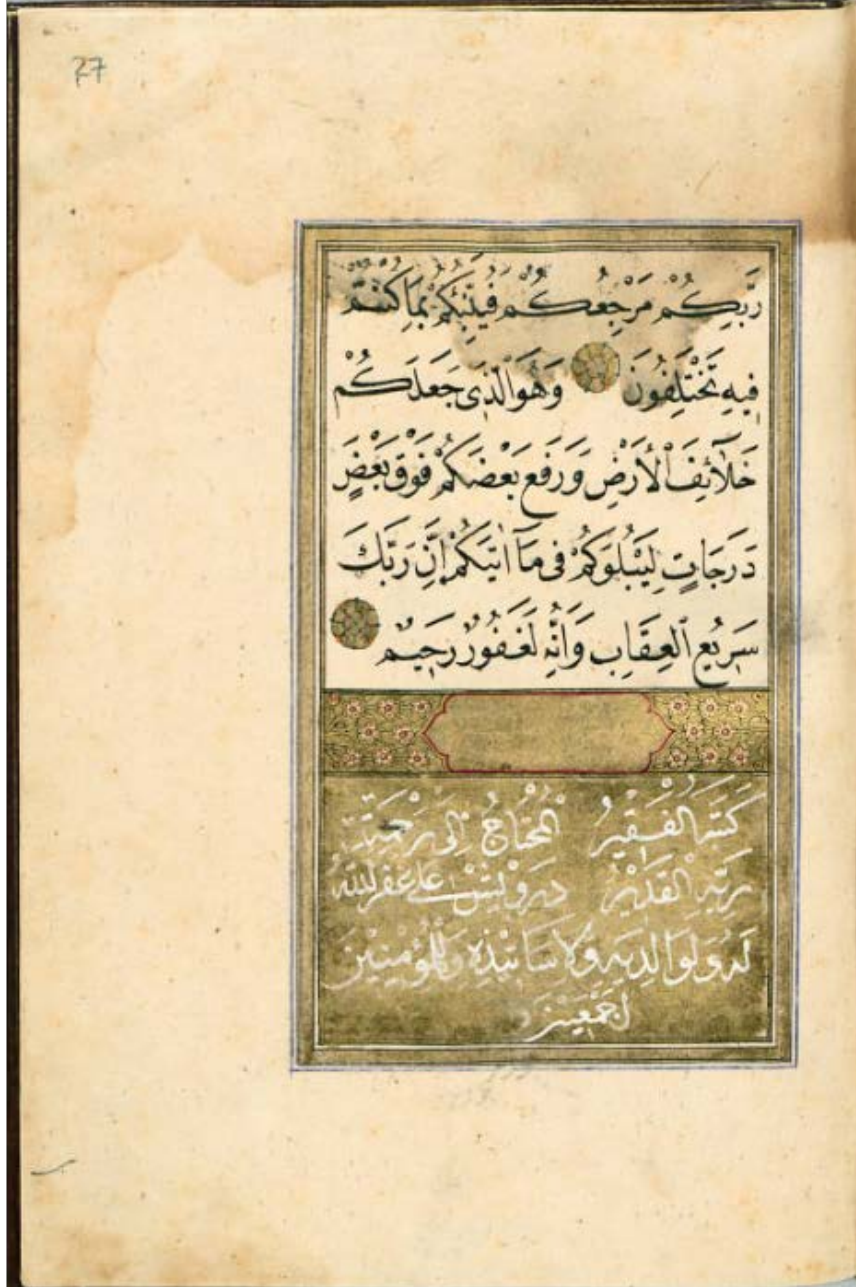 27
رَبِّكُمْ مَرْجِعُكُمْ فَيُنَبِّئُكُمْ بِمَا كُنْتُمْ
فِيهِ تَخْتَلِفُونَ وَهُوَ الَّذِى جَعَلَكُمْ
خَلَآئِفَ الْأَرْضِ وَرَفَعَ بَعْضَكُمْ فَوْقَ بَعْضٍ
دَرَجَاتٍ لِيَبْلُوَكُمْ فِى مَآ اٰتٰيكُمْ إِنَّ رَبَّكَ
سَرِيعُ الْعِقَابِ وَاِنَّهُ لَغَفُورٌ رَحِيمٌ
كَتَبَهُ الْفَقِيرُ الْمُحْتَاجُ اِلَى رَحْمَةِ
رَبِّهِ الْقَدِيْرِ دَرْوِيْشْ عَلِى غَفَرَ اللّٰهُ
لَهُ وَلِوَالِدَيْهِ وَلِاَسَاتِيْذِهِ وَلِلْمُؤْمِنِيْنَ
اَجْمَعِيْنَ